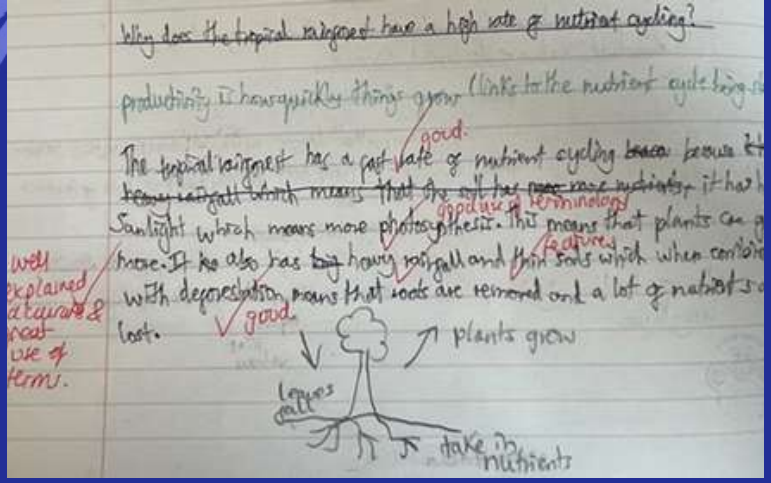 Why does the tropical rainforest have a high rate of nutrient cycling?
productivity is how quickly things grow (links to the nutrient cycle being
good.
The tropical rainforest has a fast rate of nutrient cycling because it
heavy rainfall which means that the soil has more nutrients, it has
good use of terminology
Sunlight which means more photosynthesis. This means that plants can
features
more. It also has big heavy rainfall and thin soils which when combined
well explained accurate & neat use of term.
with deforestation means that roots are removed and a lot of nutrients
lost.
good.
plants grow
leaves fall
take in nutrients